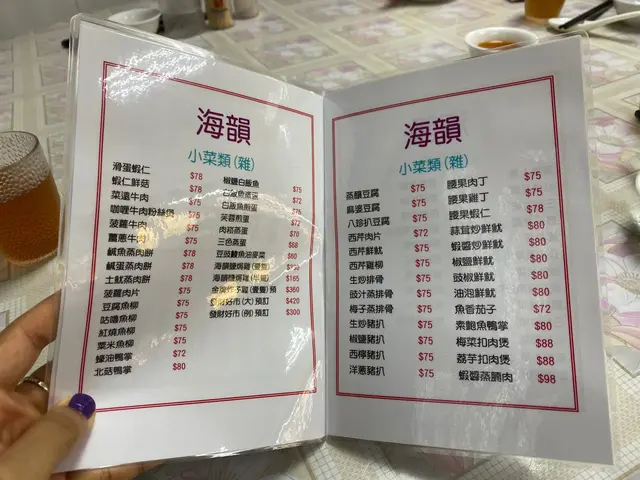 海韻
小菜類(雜)
滑蛋蝦仁 $78
蝦仁鮮菇 $78
菜遠牛肉 $75
咖喱牛肉粉絲煲 $78
菠蘿牛肉 $75
薑蔥牛肉 $75
鹹魚蒸肉餅 $78
鹹蛋蒸肉餅 $78
土魷蒸肉餅 $78
菠蘿肉片 $75
豆腐魚柳 $75
咕嚕魚柳 $75
紅燒魚柳 $75
粟米魚柳 $75
蠔油鴨掌 $72
北菇鴨掌 $80
椒鹽白飯魚 $75
白飯魚蒸蛋 $72
白飯魚煎蛋 $75
芙蓉煎蛋 $72
肉崧蒸蛋 $70
三色蒸蛋 $68
豆豉鯪魚油麥菜 $60
海韻鹽焗雞
海韻鹽焗雞 $165
(壹隻)預 $360
發財好市(大)預訂 $420
發財好市(例)預訂 $300
海韻
小菜類(雜)
蒸釀豆腐 $75
麻婆豆腐 $75
八珍扒豆腐 $75
西芹肉片 $72
西芹魷魚 $75
西芹雞柳 $75
生炒排骨 $75
豉汁蒸排骨 $75
梅子蒸排骨 $75
生炒豬扒 $75
椒鹽豬扒 $75
西檸豬扒 $75
洋蔥豬扒 $75
腰果肉丁 $75
腰果雞丁 $75
腰果蝦仁 $78
蒜茸炒鮮魷 $80
蝦醬炒鮮魷 $80
椒鹽鮮魷 $80
豉椒鮮魷 $80
油泡鮮魷 $80
魚香茄子 $72
素鮑魚鴨掌 $80
梅菜扣肉煲 $88
荔芋扣肉煲 $88
蝦醬蒸腩肉 $98